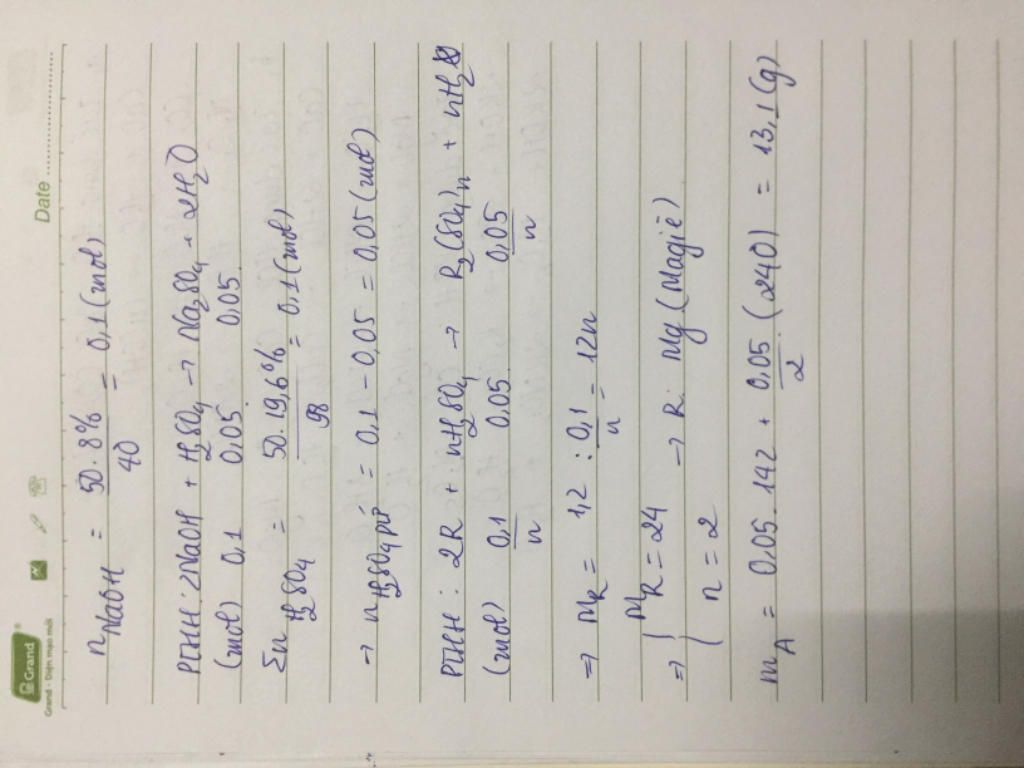 Grand
Grand - Diện mạo mới
Date
n NaOH = 50.8% / 40 = 0,1 (mol)
PTHH: 2NaOH + H2SO4 → Na2SO4 + 2H2O
(mol) 0,1 0,05 0,05
Σn H2SO4 = 50.19,6% / 98 = 0,1 (mol)
→ n H2SO4 pứ = 0,1 - 0,05 = 0,05 (mol)
PTHH: 2R + nH2SO4 → R2(SO4)n + nH2
(mol) 0,1/n 0,05 0,05/n
=> MR = 1,2 : 0,1/n = 12n
=> { MR = 24 → R: Mg (Magiê)
n = 2
mA = 0,05.142 + 0,05/2.(240) = 13,1 (g)